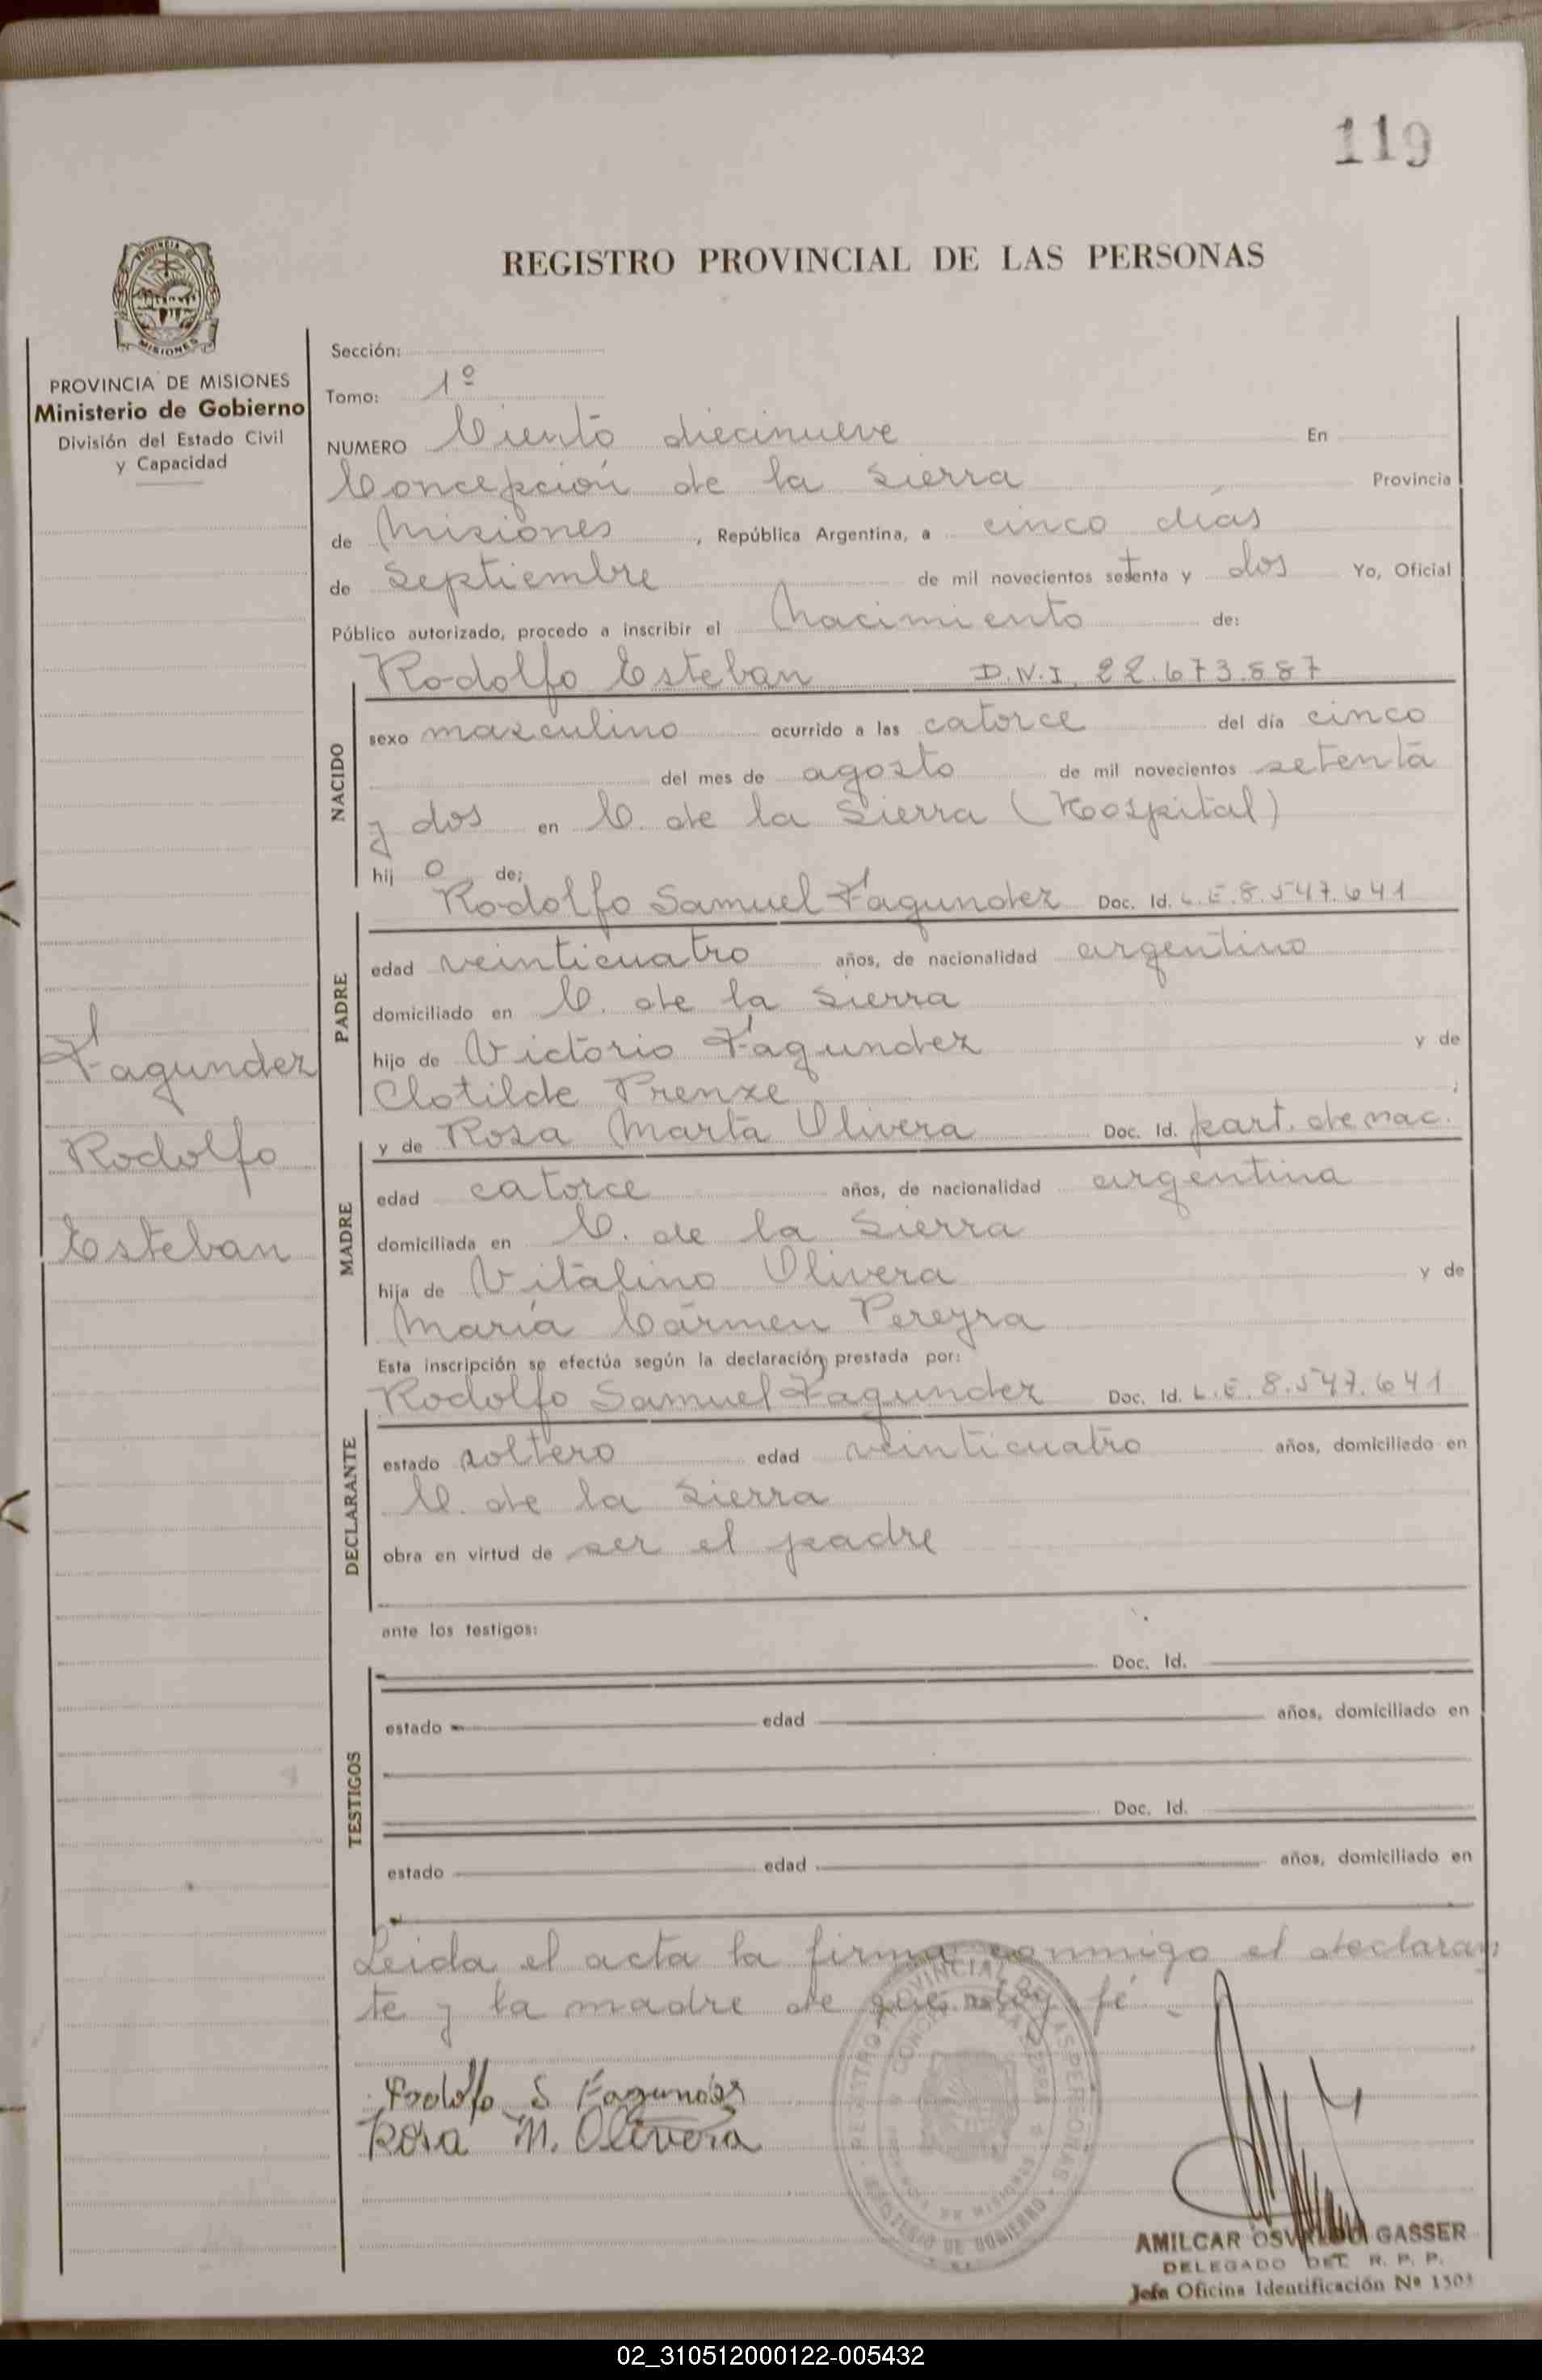 119
REGISTRO PROVINCIAL DE LAS PERSONAS
PROVINCIA
MISIONES
PROVINCIA DE MISIONES
Ministerio de Gobierno
División del Estado Civil
y Capacidad
Fagundez
Rodolfo
Esteban
Sección:
Tomo: 1º
NUMERO Ciento diecinueve En
Concepción de la Sierra Provincia
de Misiones , República Argentina, a cinco días
de Septiembre de mil novecientos setenta y dos Yo, Oficial
Público autorizado, procedo a inscribir el Nacimiento de:
Rodolfo Esteban D.N.I. 22.673.887
NACIDO
sexo masculino ocurrido a las catorce del día cinco
del mes de agosto de mil novecientos setenta
y dos en C. de la Sierra (Hospital)
hij o de:
Rodolfo Samuel Fagundez Doc. Id. L.E. 8.547.641
PADRE
edad veinticuatro años, de nacionalidad argentino
domiciliado en C. de la Sierra
hijo de Victorio Fagundez y de
Clotilde Prenze ;
y de Rosa Marta Olivera Doc. Id. part. de nac.
MADRE
edad catorce años, de nacionalidad argentina
domiciliada en C. de la Sierra
hija de Vitalino Olivera y de
María Cármen Pereyra
Esta inscripción se efectúa según la declaración prestada por:
Rodolfo Samuel Fagundez Doc. Id. L.E. 8.547.641
DECLARANTE
estado soltero edad veinticuatro años, domiciliado en
C. de la Sierra
obra en virtud de ser el padre
ante los testigos:
TESTIGOS
Doc. Id.
estado edad años, domiciliado en
Doc. Id.
estado edad años, domiciliado en
Leida el acta la firma conmigo el declaran
te y la madre de que doy fé.
Rodolfo S Fagundes
Rosa M. Olivera
REGISTRO PROVINCIAL DE LAS PERSONAS
MINISTERIO DE GOBIERNO
AMILCAR OSVALDO GASSER
DELEGADO DEL R. P. P.
Jefe Oficina Identificación Nº 1503
02_310512000122-005432